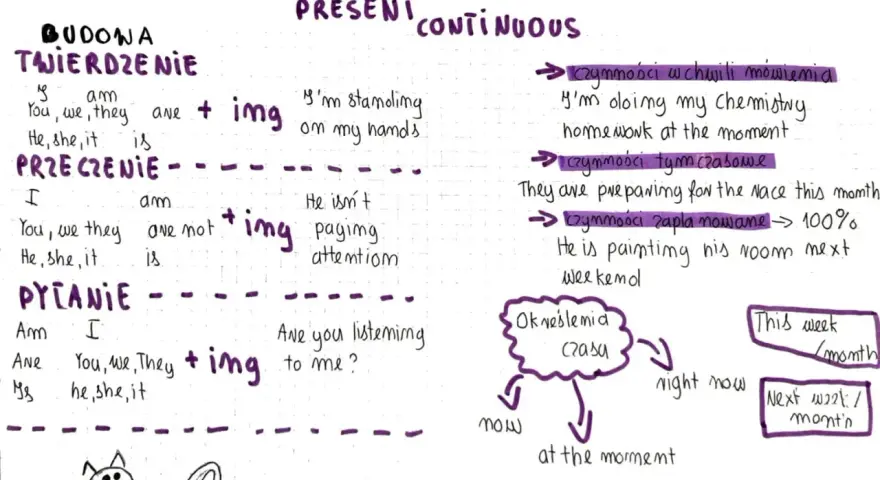 PRESENT
CONTINUOUS
BUDOWA
TWIERDZENIE
I am
You, we, they are + ing
He, she, it is
I'm standing
on my hands
PRZECZENIE
I am
You, we they are not + ing
He, she, it is
He isn't
paying
attention
PYTANIE
Am I
Are You, we, They + ing
Is he, she, it
Are you listening
to me?
→ czynności w chwili mówienia
I'm doing my Chemistry
homework at the moment
→ czynności tymczasowe
They are preparing for the race this month
→ czynności zaplanowane → 100%
He is painting his room next
weekend
Określenia
czasu
now
at the moment
right now
This week
/month
Next week/
month